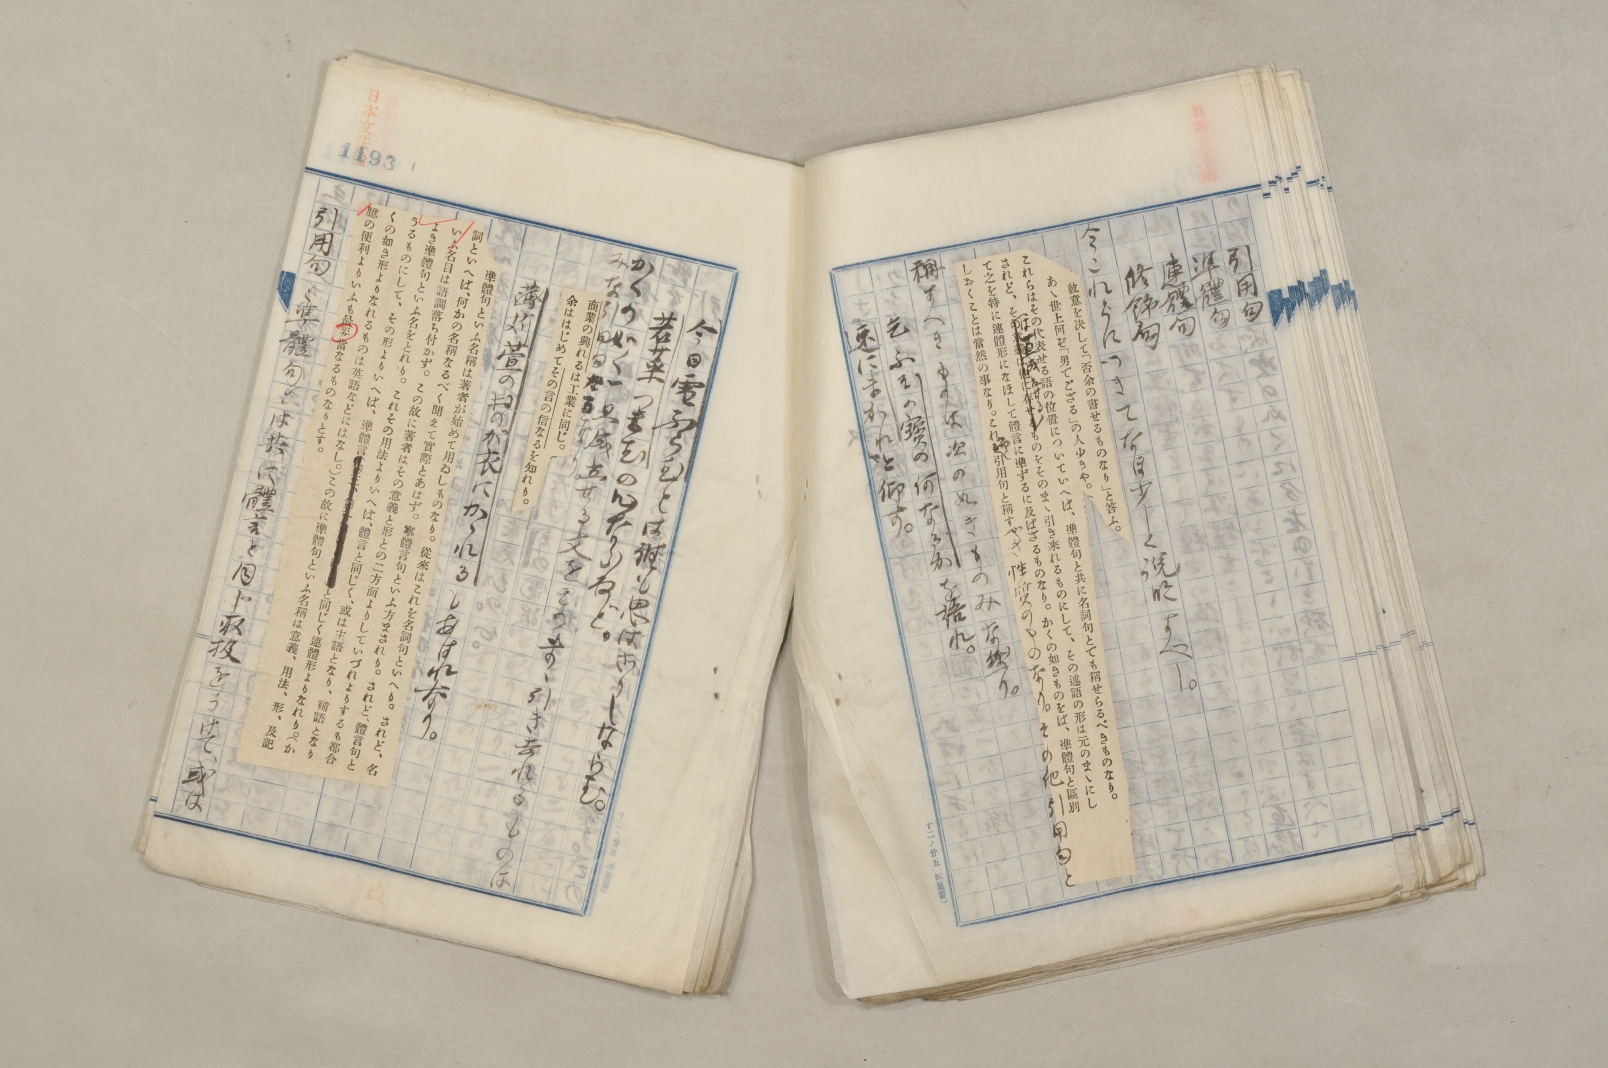 引用句
準體句
連體句
修飾句
今これらにつきてなほ少しく説明すべし。
彼意を決して「否余の書せるものなり」と答ふ。
あゝ世上何ぞ「男でござる」の人少きや。
これらはその代表せる語の位置についていへば、準體句と共に名詞句とても稱せらるべきものなり。
されど、その
ものをそのまゝ引き來れるものにして、その述語の形は元のまゝにし
て之を特に連體形になほして體言に準ずるに及ばざるものなり。かくの如きものをば、準體句と區別
しおくことは當然の事なり。これ
引用句と稱すべき性質のものなり。その他引用句と
稱すべきものは次の如きものみな然り。
ふぞの寶の何なるかを語れ。
速にまかれと仰す。
1193
今日雪ふらむとは誰も思はざりしならむ。
若菜つまむの心たらふなど。
かくの如く一旦成立せる文をそのまゝ引き來れるものは
みな引用句なり。
商業の興れるは工業に同じ。
余ははじめてその言の信なるを知れり。
萱のおのが衣にかくれるもあはれなり。
準體句といふ名稱は著者が始めて用ゐしものなり。從來はこれを名詞句といへり。されど、名
詞といへば、何かの名稱なるべく聞えて實際とあはず。寧體言句といふ方まされり。されど、體言句と
いふ名目は語調落ち付かず。この故に著者はその意義と形との二方面よりしていづれよりするも都合
よき準體句といふ名をとれり。これその用法よりいへば、體言と同じく、或は主語となり、補語となり
うるものにして、その形よりいへば、準體言
と同じく連體形よりなれり。か
くの如き形よりなれるものは英語などにはなし。この故に準體句といふ名稱は意義、用法、形、及記
憶の便利よりいふも最妥當なるものなりとす。
引用句と準體句とは共に體言と同じ取扱をうけて、或は